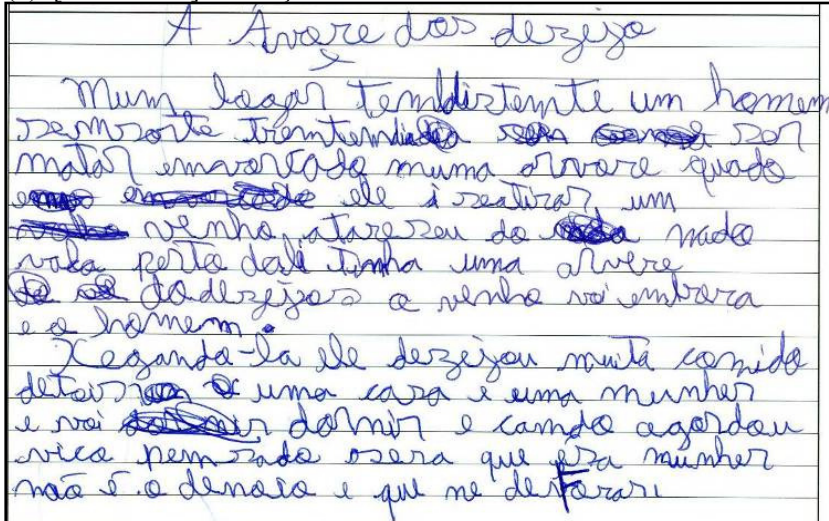 A Avore dos dezejo
Mum loogar temldistemte um homem
semsorte tremtemdia ser
matar emvorcado muma arvore quado
ele i seatirar um
venho, atareseu do nada
vaka perto dali timha uma alvere
dodezejos o venho voi embora
e o homem.
Xegando-la ele dezejou muita comida
detois uma casa e uma munher
e voi dormir e camdo agordou
vico pemsado osera que esa munher
não é o denoio e que me deforari